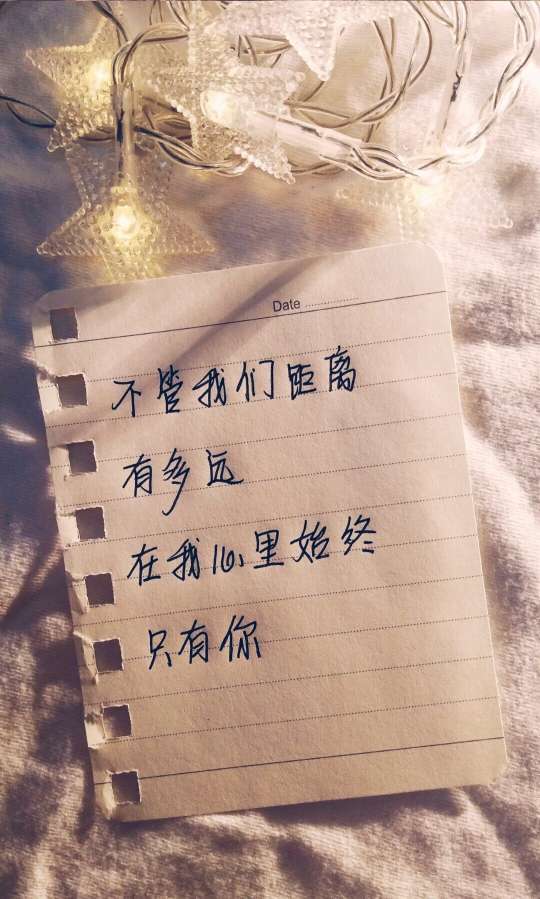 Date
不管我们距离
有多远
在我心里始终
只有你